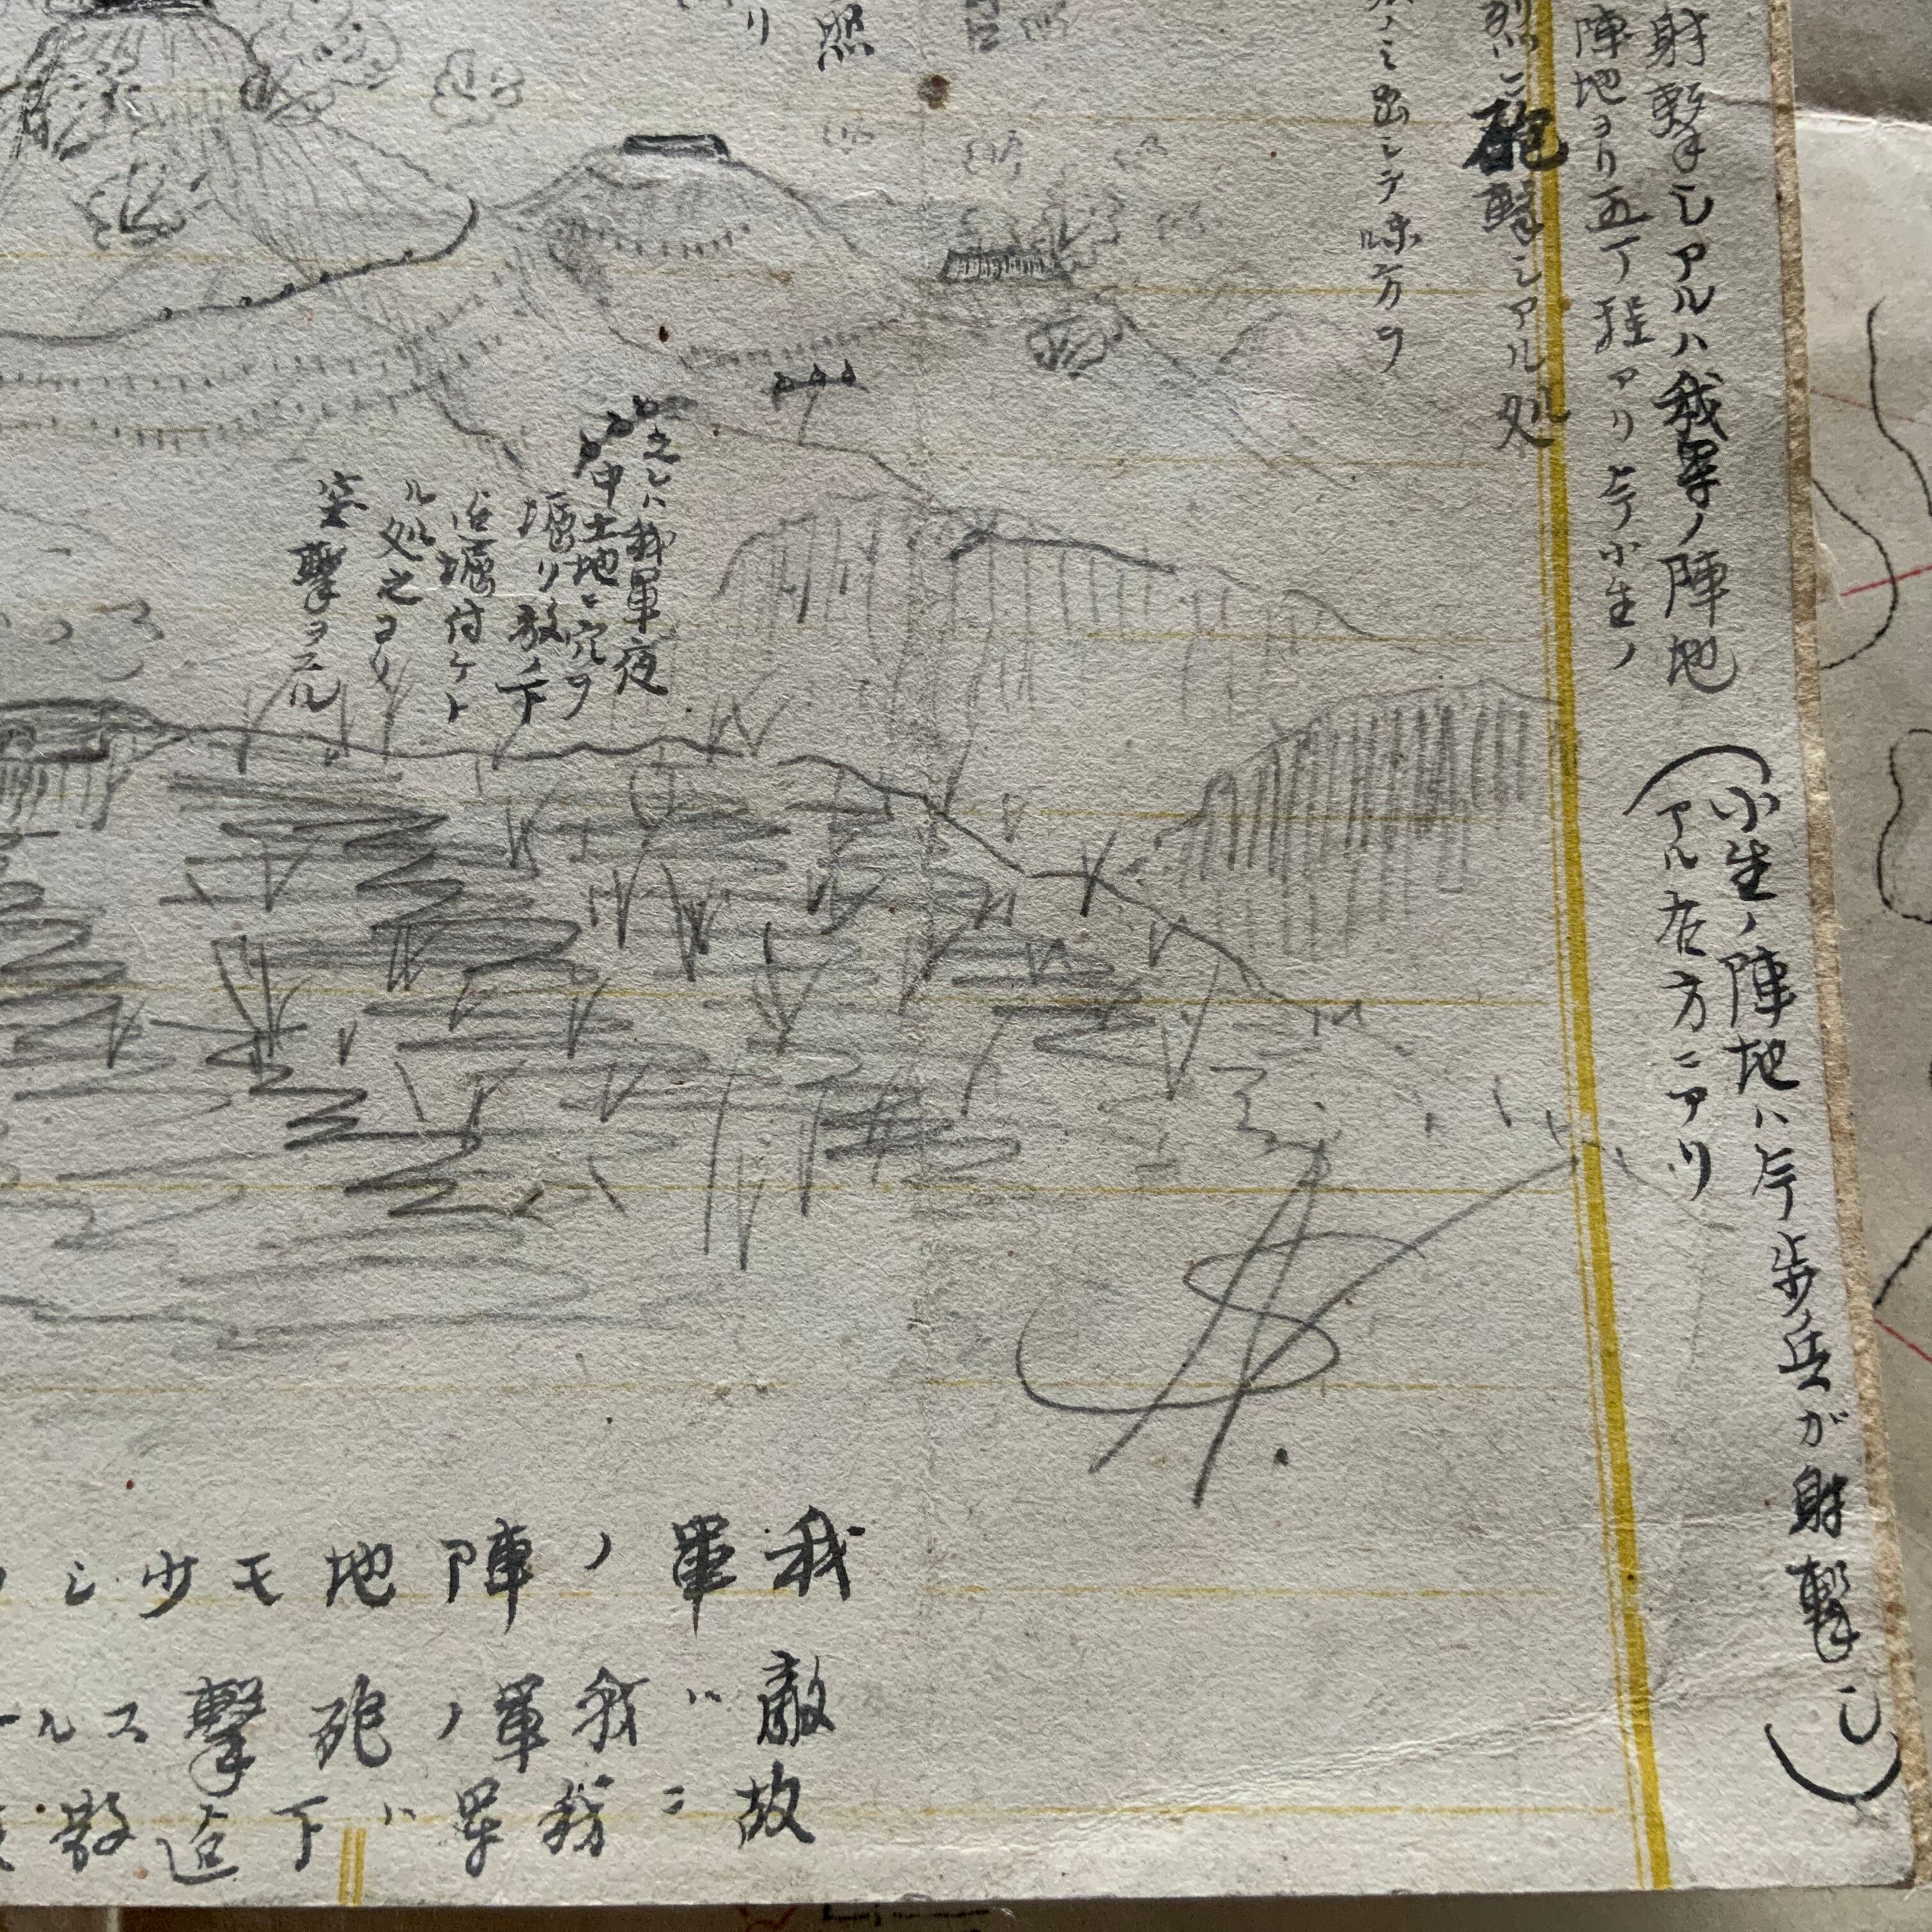 射撃シアルハ我軍ノ陣地
(小生ノ陣地ハ片歩兵が射撃シ
アル左方ニアリ)
陣地ヨリ五丁程アリ片小生ノ
砲撃シアル処
ノミ出シテ味方ヲ
照
リ
之レハ我軍夜
中土地ニ穴ヲ
堀リ敵ノ下
迄堀付ケト
ル処之ヨリ
突撃ヲスル
我軍ノ陣地モ少シ
敵ハ我軍ノ砲撃スル
故ニ我軍ハ下迄散